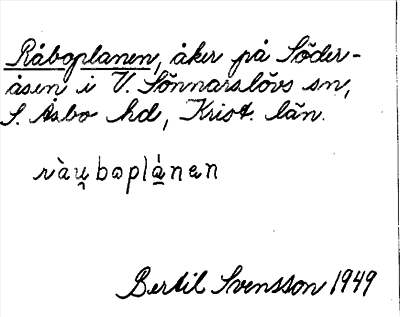 Råboplanen, åker på Söder-
åsen i V. Sönnarslövs sn,
S. Åsbo hd, Krist. län.
ràu̯boplánen
Bertil Svensson 1949